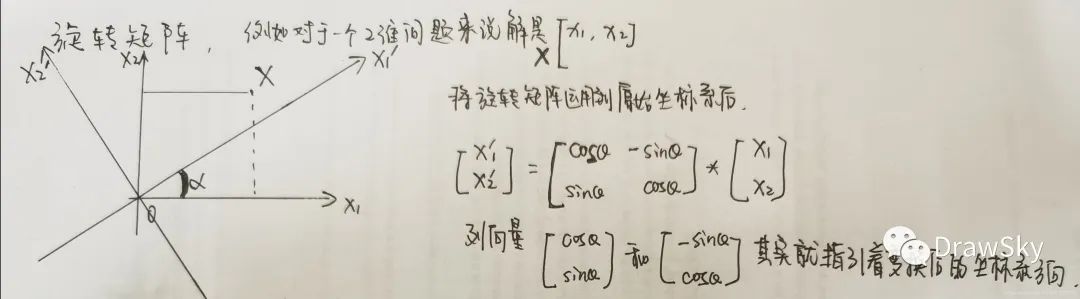 旋转矩阵，例如对于一个2维问题来说解是[x₁, x₂]
X
x₂'
x₂
X
x₁'
将旋转矩阵运用到原始坐标系后.
α
0
x₁
[x₁' x₂'] = [cosθ -sinθ sinθ cosθ] * [x₁ x₂]
列向量 [cosθ sinθ] 和 [-sinθ cosθ] 其实就指引着变换后的坐标系方向.
DrawSky